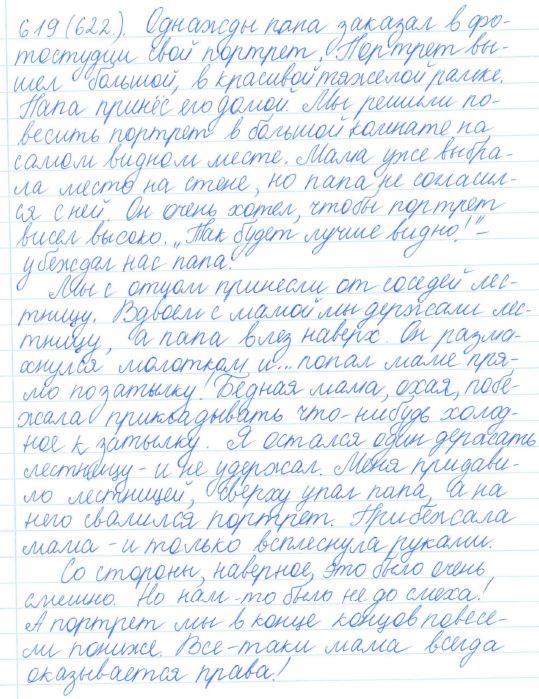 619 (622). Однажды папа заказал в фо-
тостудии свой портрет. Портрет вы-
шел большой, в красивой тяжелой рамке.
Папа принёс его домой. Мы решили по-
весить портрет в большой комнате на
самом видном месте. Мама уже выбра-
ла место на стене, но папа не согласил-
ся с ней. Он очень хотел, чтобы портрет
висел высоко. „Так будет лучше видно!" –
убеждал нас папа.
Мы с отцом принесли от соседей лес-
тницу. Вдвоем с мамой мы держали лес-
тницу, а папа влез наверх. Он разма-
хнулся молотком и... попал маме пря-
мо по затылку! Бедная мама, охая, побе-
жала прикладывать что-нибудь холод-
ное к затылку. Я остался один держать
лестницу – и не удержал. Меня придави-
ло лестницей, сверху упал папа, а на
него свалился портрет. Прибежала
мама – и только всплеснула руками.
Со стороны, наверное, это было очень
смешно. Но нам-то было не до смеха!
А портрет мы в конце концов повеси-
ли пониже. Все-таки мама всегда
оказывается права!